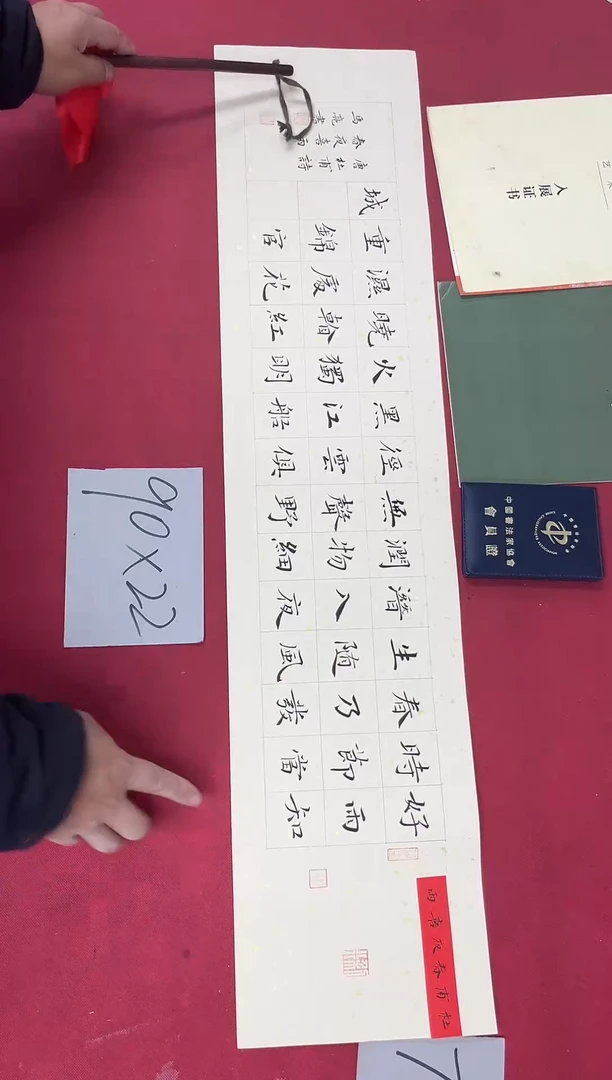 杜甫春夜喜雨
好雨知
時節當
春乃發
生隨風
潛入夜
潤物細
無聲野
徑雲俱
黑江船
火獨明
曉看紅
濕處花
重錦官
城
唐杜甫詩
春夜喜雨
馬亮書
90X22
入展证书
中國書法家協會
會員證